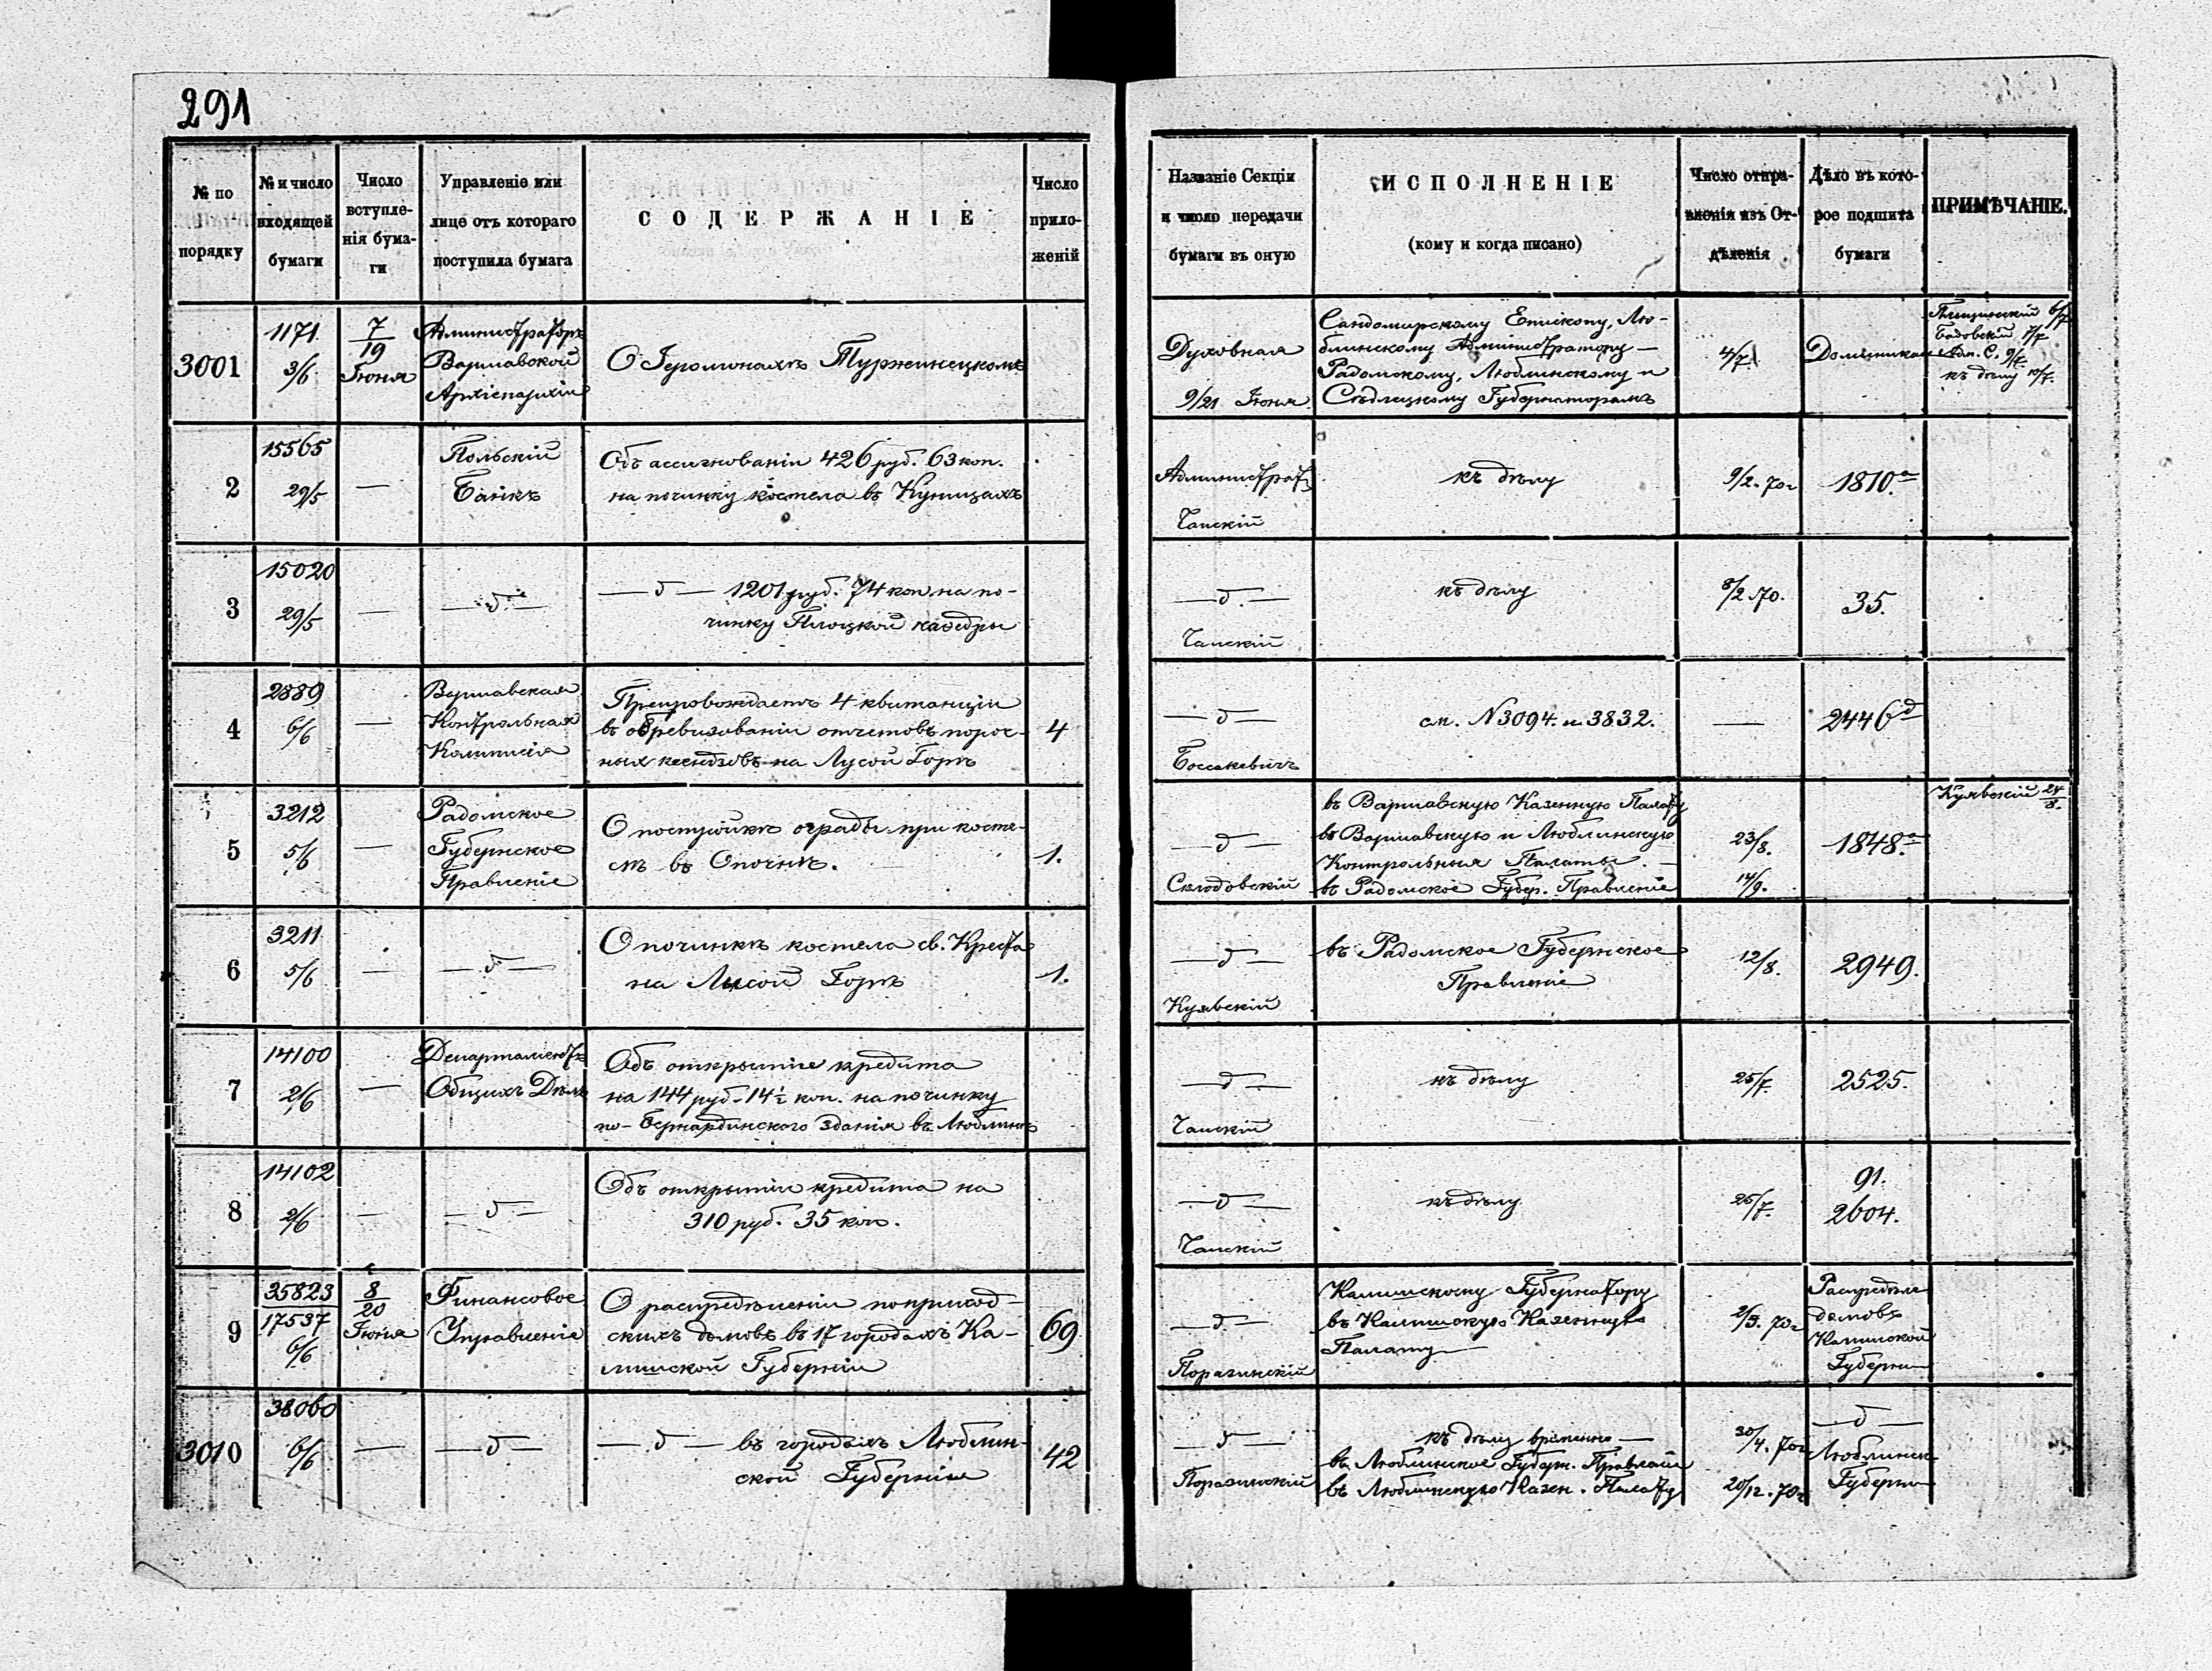 291
№ по порядку
№ и число входящей бумаги
Число вступле-нія бума-ги
Управленіе или лице отъ котораго поступила бумага
СОДЕРЖАНІЕ
Число прило-женій
Названіе Секціи и число передачи бумаги въ оную
ИСПОЛНЕНІЕ
(кому и когда писано)
Число отпра-вленія изъ От-дѣленія
Дѣло въ кото-рое подшита бумаги
ПРИМѢЧАНІЕ.
3001
1171
3/6
7/19
Іюня
Администраторъ
Варшавской
Архіепархіи
О Іеромонахѣ
Духовная
9/21 Іюня
Сандомирскому Епископу, Лю-
блинскому Администратору —
Радомскому, Люблинскому и
Сѣдлецкому Губернаторамъ
4/7
6/7
7/7
9/7
къ дѣлу 10/7.
2
15565
29/5
—
Польскій
Банкъ
Объ ассигнованіи 426 руб. 63 коп.
на починку костела въ
Администрат
Чапскій
къ дѣлу
9/2. 70 г
1810.а
3
15020
29/5
—
— д —
— д — 1201 руб. 74 коп на по-
чинку Плоцкой каѳедры
— д. —
Чапскій
къ дѣлу
8/2. 70.
35.
4
2889
6/6
—
Варшавская
Контрольная
Коммисія
Препровождаетъ 4 квитанціи
въ обревизованіи отчетовъ пороч-
ныхъ ксендзовъ на Лысой Горѣ
4
— д —
см. N 3094. и 3832.
—
2446 д
5
3212
5/6
—
Радомское
Губернское
Правленіе
О постройкѣ ограды при косте-
лѣ въ Опочнѣ.
1.
— д —
Склодовскій
въ Варшавскую Казенную Палату
въ Варшавскую и Люблинскую
Контрольныя Палаты. —
въ Радомское Губер. Правленіе
23/8.
14/9.
1848.а
Куявскій 24/8.
6
3211
5/6
—
— д —
О починкѣ костела св. Креста
на Лысой Горѣ
1.
— д —
Куявскій
въ Радомское Губернское
Правленіе
12/8.
2949.
7
14100
2/6
—
Департаментъ
Общихъ Дѣлъ
Объ открытіе кредита
на 144 руб. 14½ коп. на починку
по-Бернардинского зданія въ Люблинѣ
— д —
Чапскій
къ дѣлу
25/7.
2525.
8
14102
2/6
—
— д —
Объ открытіи кредита на
310 руб. 35 коп.
— д —
Чапскій
къ дѣлу
25/7.
91.
2604.
9
35823
17537
6/6
8/20
Іюня
Финансовое
Управленіе
О распредѣленіи поприход-
скихъ домовъ въ 17 городахъ Ка-
лишской Губерніи
69
— д. —
Поразинскій
Калишскому Губернатору
въ Калишскую Казенную
Палату —
2/3. 70 г
Распредѣле
домовъ
Калишской
Губерни
3010
38060
6/6
—
— д —
— д — въ городахъ Люблин-
ской Губерніи
42
— д —
Поразинскій
къ дѣлу временно —
въ Люблинское Губерн. Правленіе
въ Люблинскую Казен. Палату
30/4. 70 г
20/12. 70 г
— д —
Люблинск
Губерни